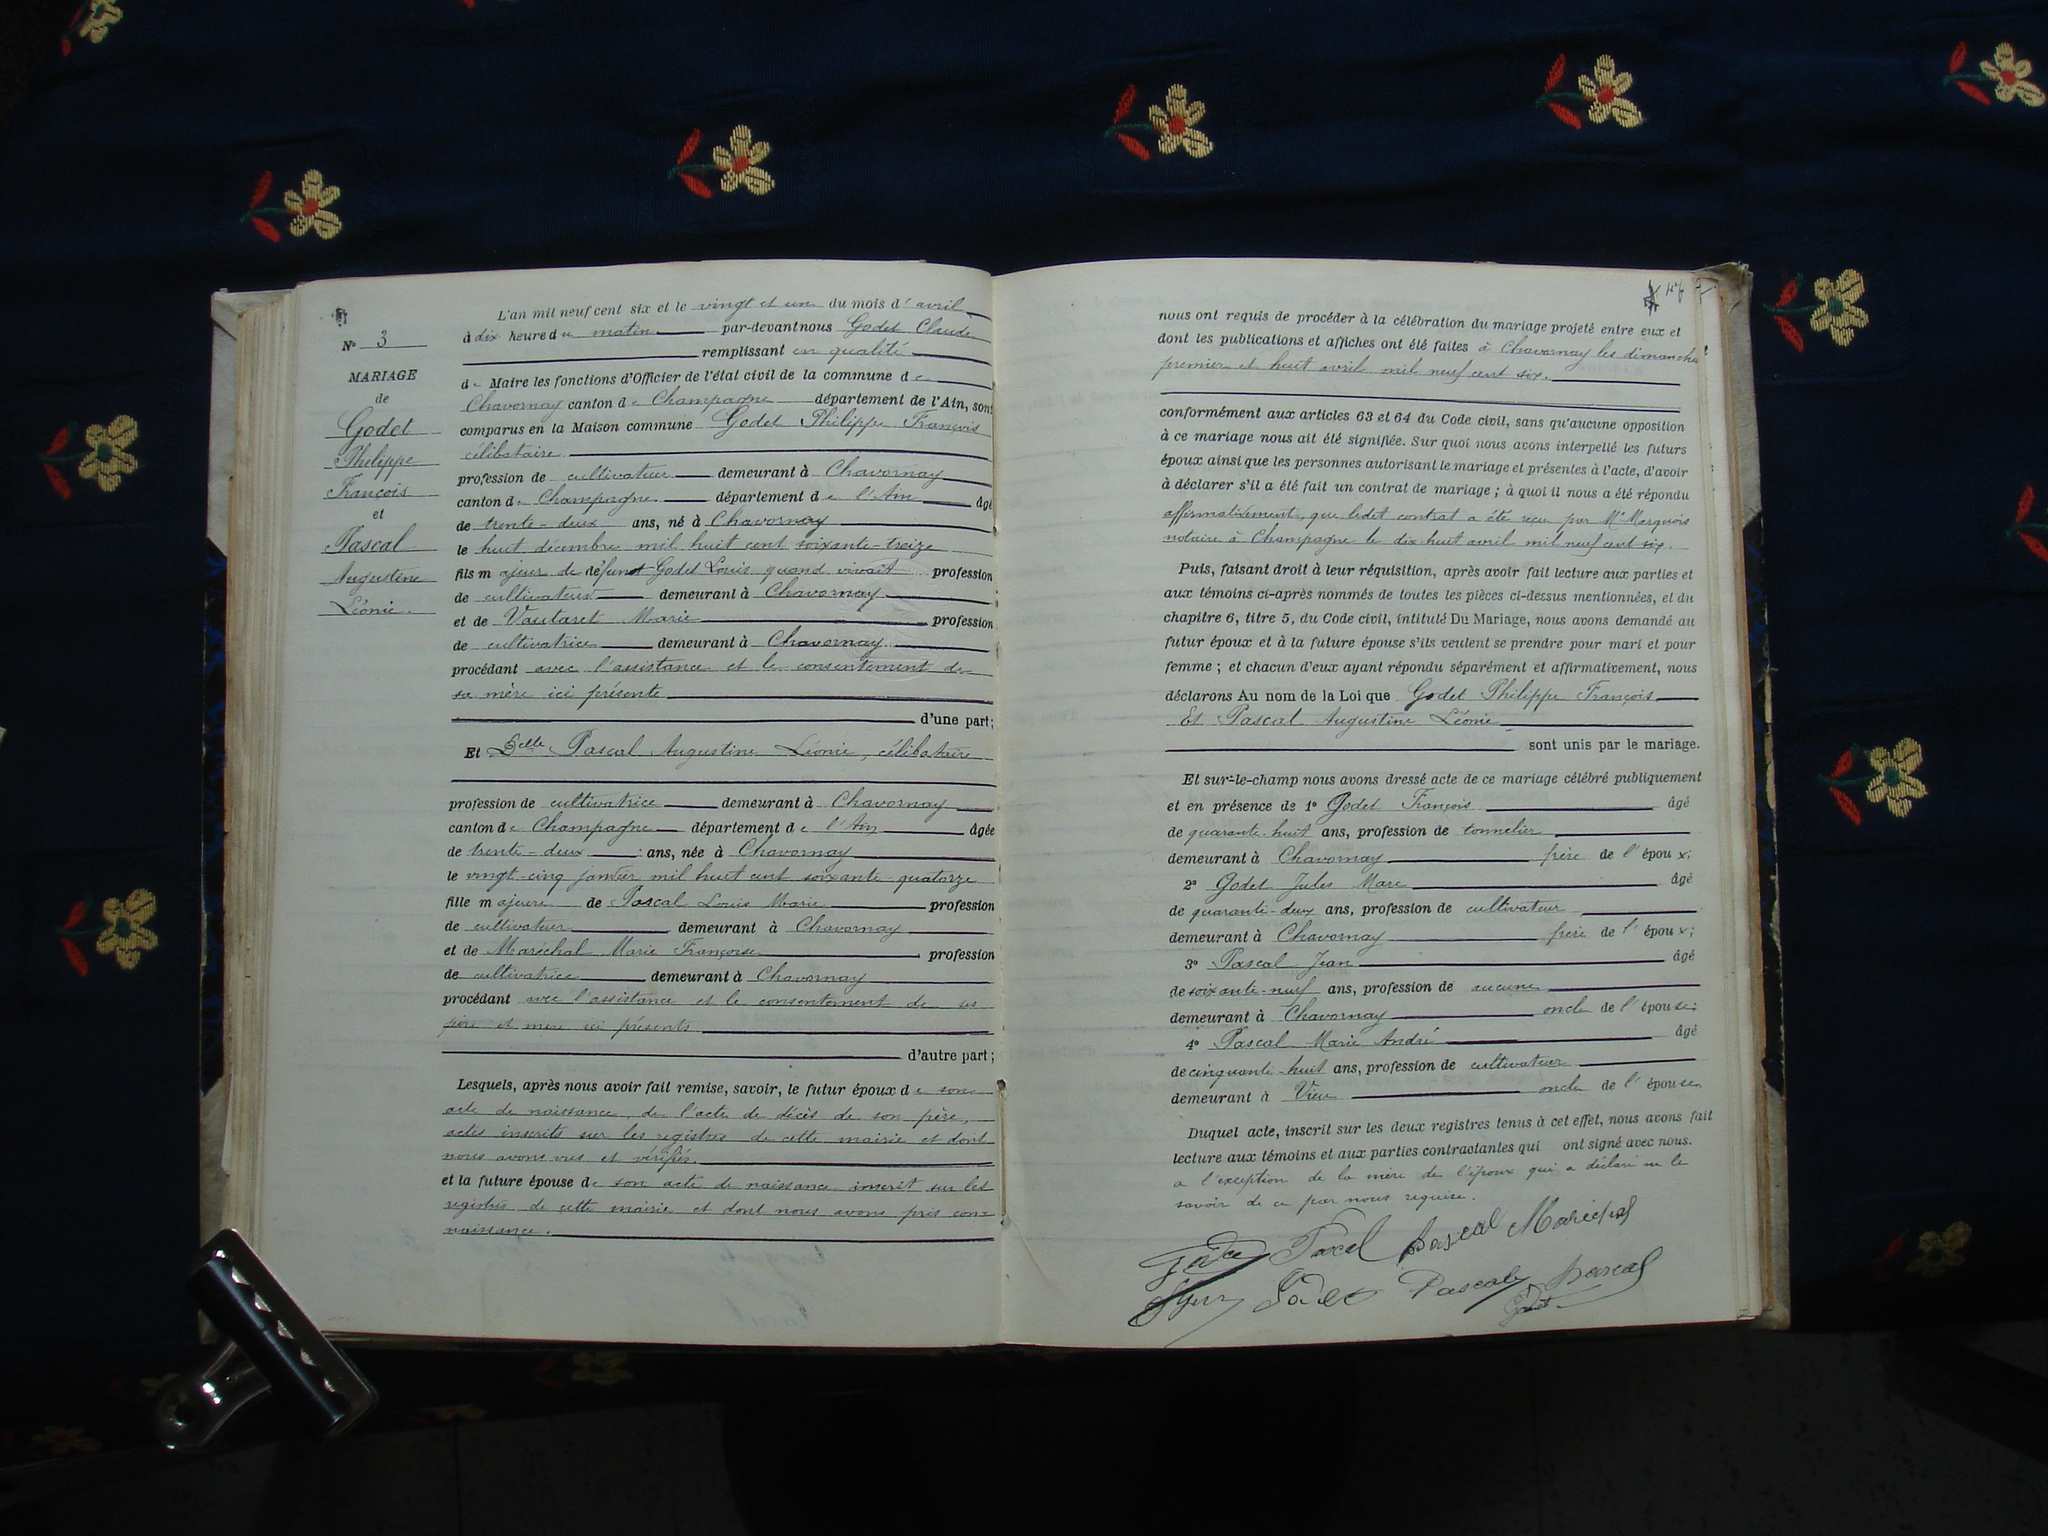 N° 3
MARIAGE
de
Godet
Philippe
François
et
Pascal
Augustine
Léonie.
L'an mil neuf cent six et le vingt et un du mois d'avril
à dix heure du matin par-devant nous Godet Claude
remplissant en qualité
de Maire les fonctions d'Officier de l'état civil de la commune de
Chavornay canton de Champagne département de l'Ain, sont
comparus en la Maison commune Godet Philippe François
célibataire
profession de cultivateur demeurant à Chavornay
canton de Champagne département de l'Ain âgé
de trente-deux ans, né à Chavornay
le huit décembre mil huit cent soixante-treize
fils majeur de défunt Godet Louis quand vivait profession
de cultivateur demeurant à Chavornay
et de Vautaret Marie profession
de cultivatrice demeurant à Chavornay
procédant avec l'assistance et le consentement de
sa mère ici présente
d'une part;
Et Delle Pascal Augustine Léonie, célibataire
profession de cultivatrice demeurant à Chavornay
canton de Champagne département de l'Ain âgée
de trente-deux ans, née à Chavornay
le vingt-cinq janvier mil huit cent soixante quatorze
fille majeure de Pascal Louis Marie profession
de cultivateur demeurant à Chavornay
et de Maréchal Marie Françoise profession
de cultivatrice demeurant à Chavornay
procédant avec l'assistance et le consentement de ses
père et mère ici présents
d'autre part;
Lesquels, après nous avoir fait remise, savoir, le futur époux de son
acte de naissance, de l'acte de décès de son père,
actes inscrits sur les registres de cette mairie et dont
nous avons vus et vérifiés.
et la future épouse de son acte de naissance inscrit sur les
registres de cette mairie et dont nous avons pris con-
naissance.
nous ont requis de procéder à la célébration du mariage projeté entre eux et
dont les publications et affiches ont été faites à Chavornay les dimanches
premier et huit avril mil neuf cent six.
conformément aux articles 63 et 64 du Code civil, sans qu'aucune opposition
à ce mariage nous ait été signifiée. Sur quoi nous avons interpellé les futurs
époux ainsi que les personnes autorisant le mariage et présentes à l'acte, d'avoir
à déclarer s'il a été fait un contrat de mariage; à quoi il nous a été répondu
affirmativement, que ledit contrat a été reçu par Me Marquois
notaire à Champagne le dix huit avril mil neuf cent six.
Puis, faisant droit à leur réquisition, après avoir fait lecture aux parties et
aux témoins ci-après nommés de toutes les pièces ci-dessus mentionnées, et du
chapitre 6, titre 5, du Code civil, intitulé Du Mariage, nous avons demandé au
futur époux et à la future épouse s'ils veulent se prendre pour mari et pour
femme; et chacun d'eux ayant répondu séparément et affirmativement, nous
déclarons Au nom de la Loi que Godet Philippe François
Et Pascal Augustine Léonie
sont unis par le mariage.
Et sur-le-champ nous avons dressé acte de ce mariage célébré publiquement
et en présence de 1° Godet François âgé
de quarante-huit ans, profession de tonnelier
demeurant à Chavornay frère de l'époux;
2° Godet Jules Marc âgé
de quarante-deux ans, profession de cultivateur
demeurant à Chavornay frère de l'époux;
3° Pascal Jean âgé
de soixante-neuf ans, profession de aucune
demeurant à Chavornay oncle de l'épouse;
4° Pascal Marie André âgé
de cinquante-huit ans, profession de cultivateur
demeurant à Vieu oncle de l'épouse
Duquel acte, inscrit sur les deux registres tenus à cet effet, nous avons fait
lecture aux témoins et aux parties contractantes qui ont signé avec nous.
a l'exception de la mère de l'époux qui a déclaré ne le
savoir de ce par nous requise.
Pascal Maréchal
Godet Pascal Pascal
Godet